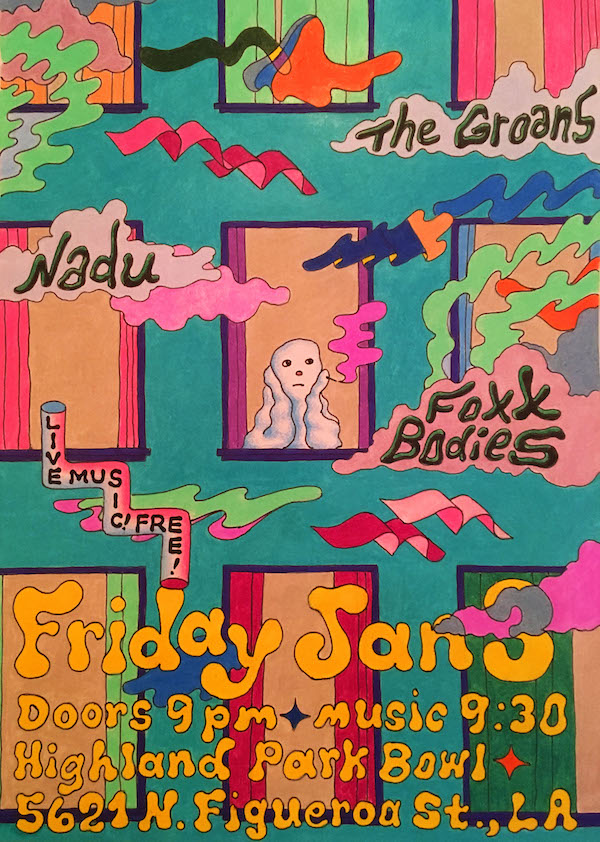 The Groans
Nadu
Foxx
Bodies
LIVE MUSIC! FREE!
Friday Jan
Doors 9pm music 9:30
Highland Park Bowl
5621 N. Figueroa St., LA